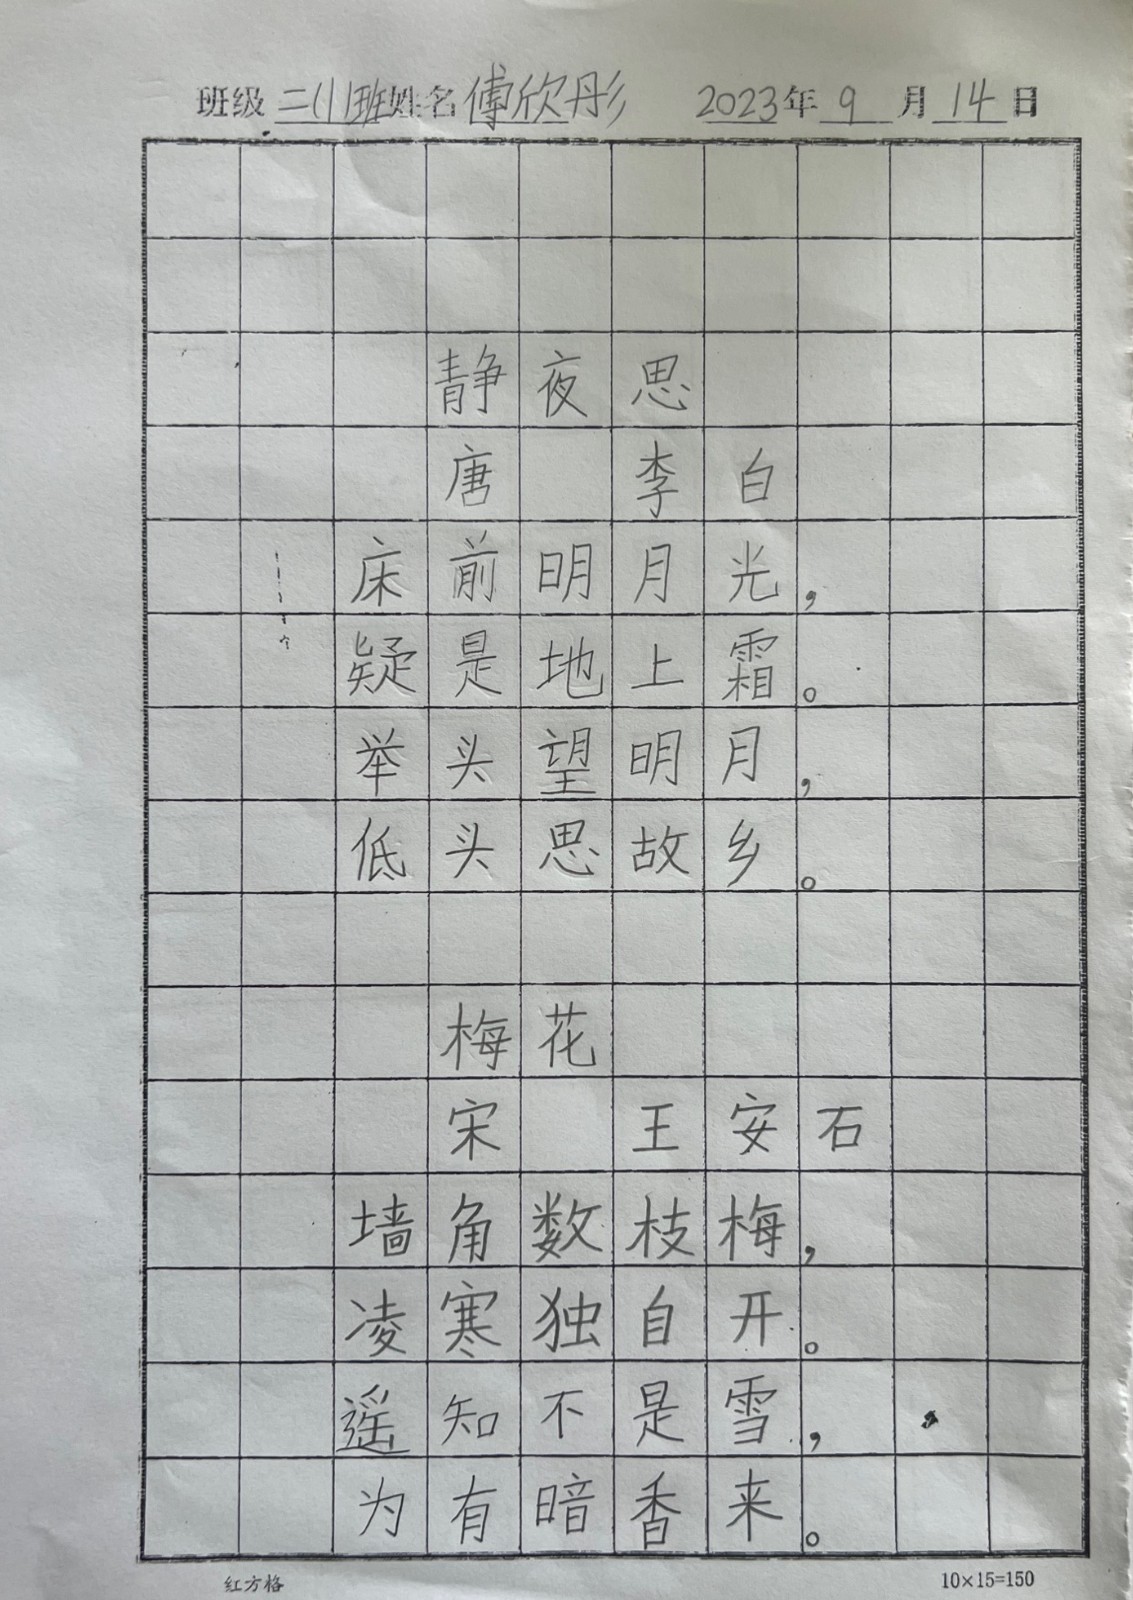 班级 二(1)班 姓名 傅欣彤 2023年 9 月 14 日
静夜思
唐 李白
床前明月光，
疑是地上霜。
举头望明月，
低头思故乡。
梅花
宋 王安石
墙角数枝梅，
凌寒独自开。
遥知不是雪，
为有暗香来。
红方格 10×15=150